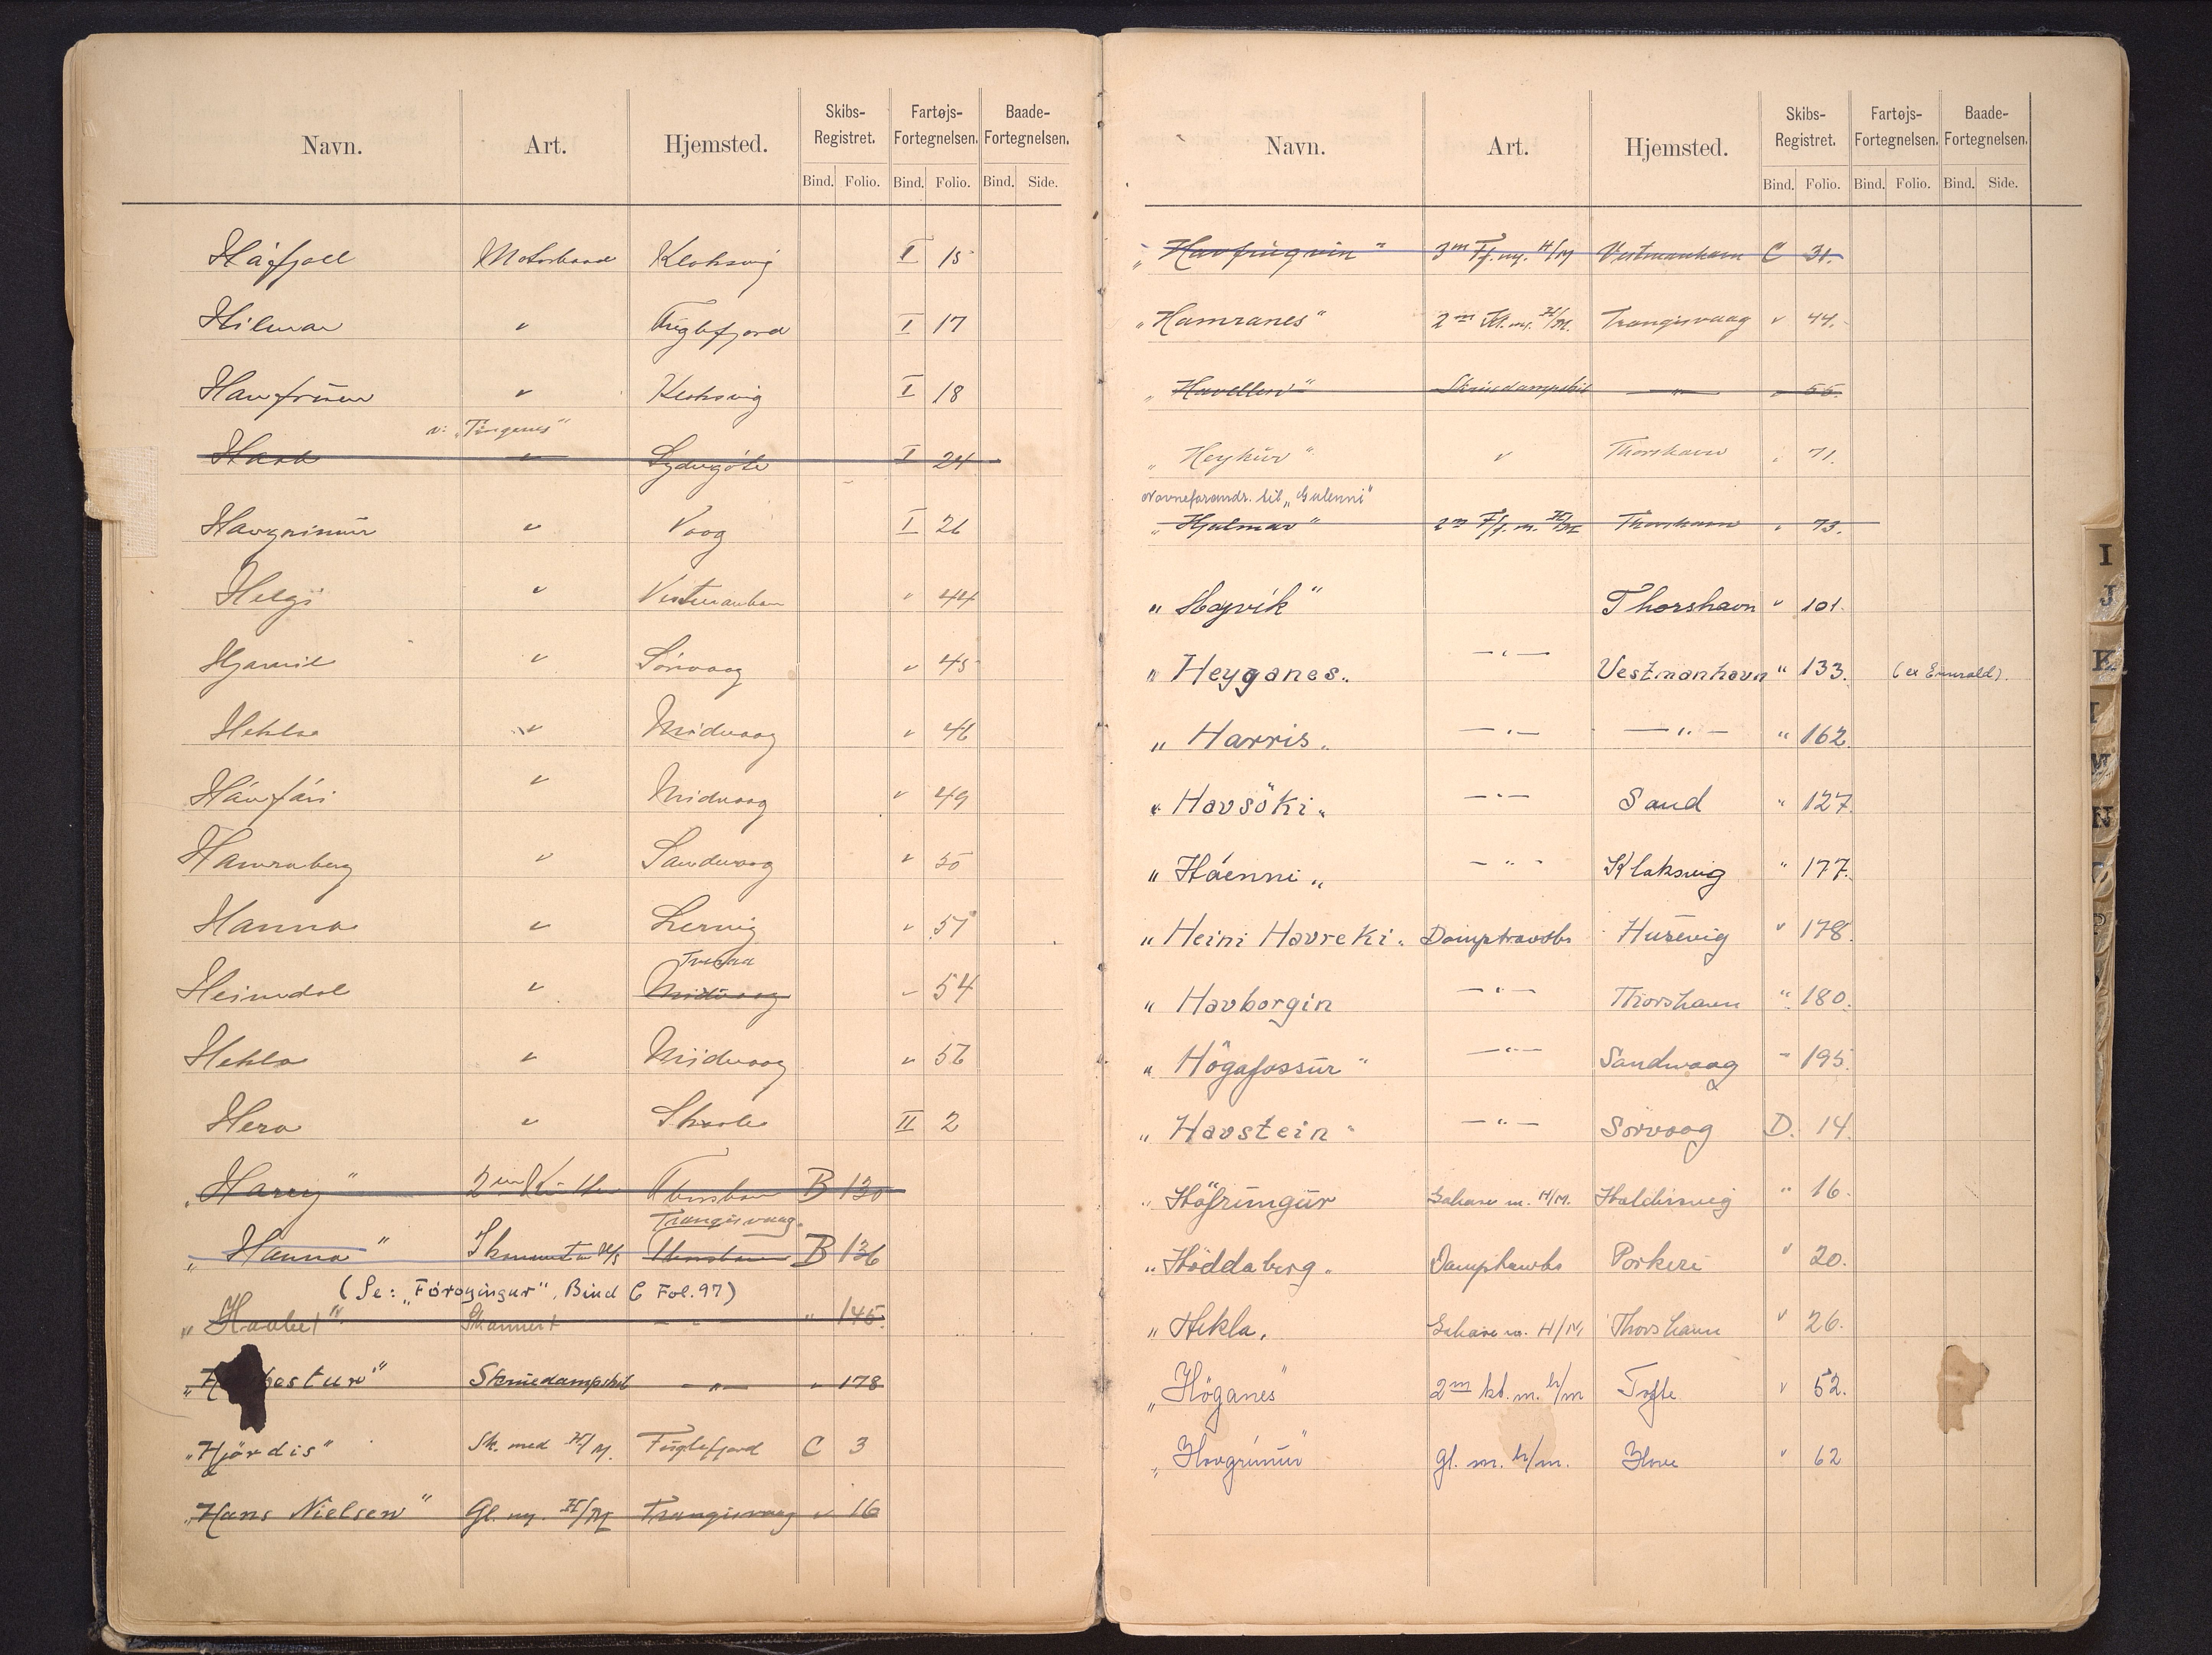 Navn. Art. Hjemsted. Skibs-Registret. Fartøjs-Fortegnelsen. Baade-Fortegnelsen.
Bind. Folio. Bind. Folio. Bind. Side.
Háfjall Motorbaad Klaksvig I 15
Hilmar " Fuglefjord I 17
Havfruen " Klaksvig I 18
n: „Tingenes"
" Sydrugöte I 24
Havgrimur " Vaag I 26
Helgi " Vestmanhavn " 44
" Sörvaag " 45
Hekla " Midvaag " 46
Hávfári " Midvaag " 49
Hamraberg " Sandvaag " 50
Hanna " Lervig " 51
Tveraa
Heimdal " Midvaag " 54
Hekla " Midvaag " 56
Hera " Skaale II 2
„Harry" 2m Kutter Thorshavn B 130
Trangisvaag.
„Hanna" Thorshavn B 136
(Se: „Föroyingur", Bind C Fol. 97)
„Haabet". Skonnert — " — " 145.
Skruedampskib — " — " 178
„Hjördis" Sk. med H/M. Fuglefjord C 3
„Hans Nielsen" Gl. m. H/M Trangisvaag " 16
Navn. Art. Hjemsted. Skibs-Registret. Fartøjs-Fortegnelsen. Baade-Fortegnelsen.
Bind. Folio. Bind. Folio. Bind. Side.
„Havfrúgvin" 3m Ff. m. H/M Vestmanhavn C 31.
„Hamranes" 2m Kt. m. H/M. Trangisvaag " 44.
Skruedampskib — " — " 55.
„Heykur" " Thorshavn " 71.
Navneforandr. til „Gulenni"
„Hjalmar" 2m Ff. m. H/M Thorshavn " 73.
„Hoyvík" Thorshavn " 101.
„Heyganes" — " — Vestmanhavn " 133. (ex Emerald).
„Harris" — " — — " — " 162.
„Havsöki" — " — Sand " 127.
„Háenni" — " — Klaksvig " 177.
„Heini Havreki" Damptrawlb Husevig " 178.
„Havborgin — " — Thorshavn " 180.
„Högafossur" — " — Sandvaag " 195.
„Havstein" — " — Sörvaag D. 14.
„Höfrungur Galease m. H/M. Haldersvig " 16.
„Höddaberg" Damptrawlb Porkeri " 20.
„Hekla. Galease m. H/M Thorshavn " 26.
„Höganes" 2m kt. m. h/m Tofte " 52.
„Havgrímur" gl. m. h/m. Hove " 62
I
J
K
L
M
N
O
P